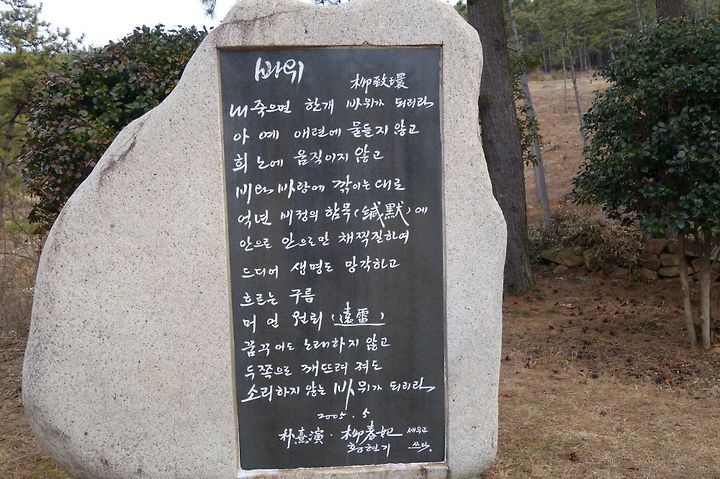 바위
柳致環
내 죽으면 한개 바위가 되리라
아예 애련에 물들지 않고
희노에 움직이지 않고
비와 바람에 깎이는 대로
억년 비정의 함묵(緘默)에
안으로 안으로만 채찍질하여
드디어 생명도 망각하고
흐르는 구름
머언 원뢰(遠雷)
꿈꾸어도 노래하지 않고
두쪽으로 깨뜨려 져도
소리하지 않는 바위가 되리라
2005. 5
朴熹演 · 柳春妃 세우고
황현기 쓰다.